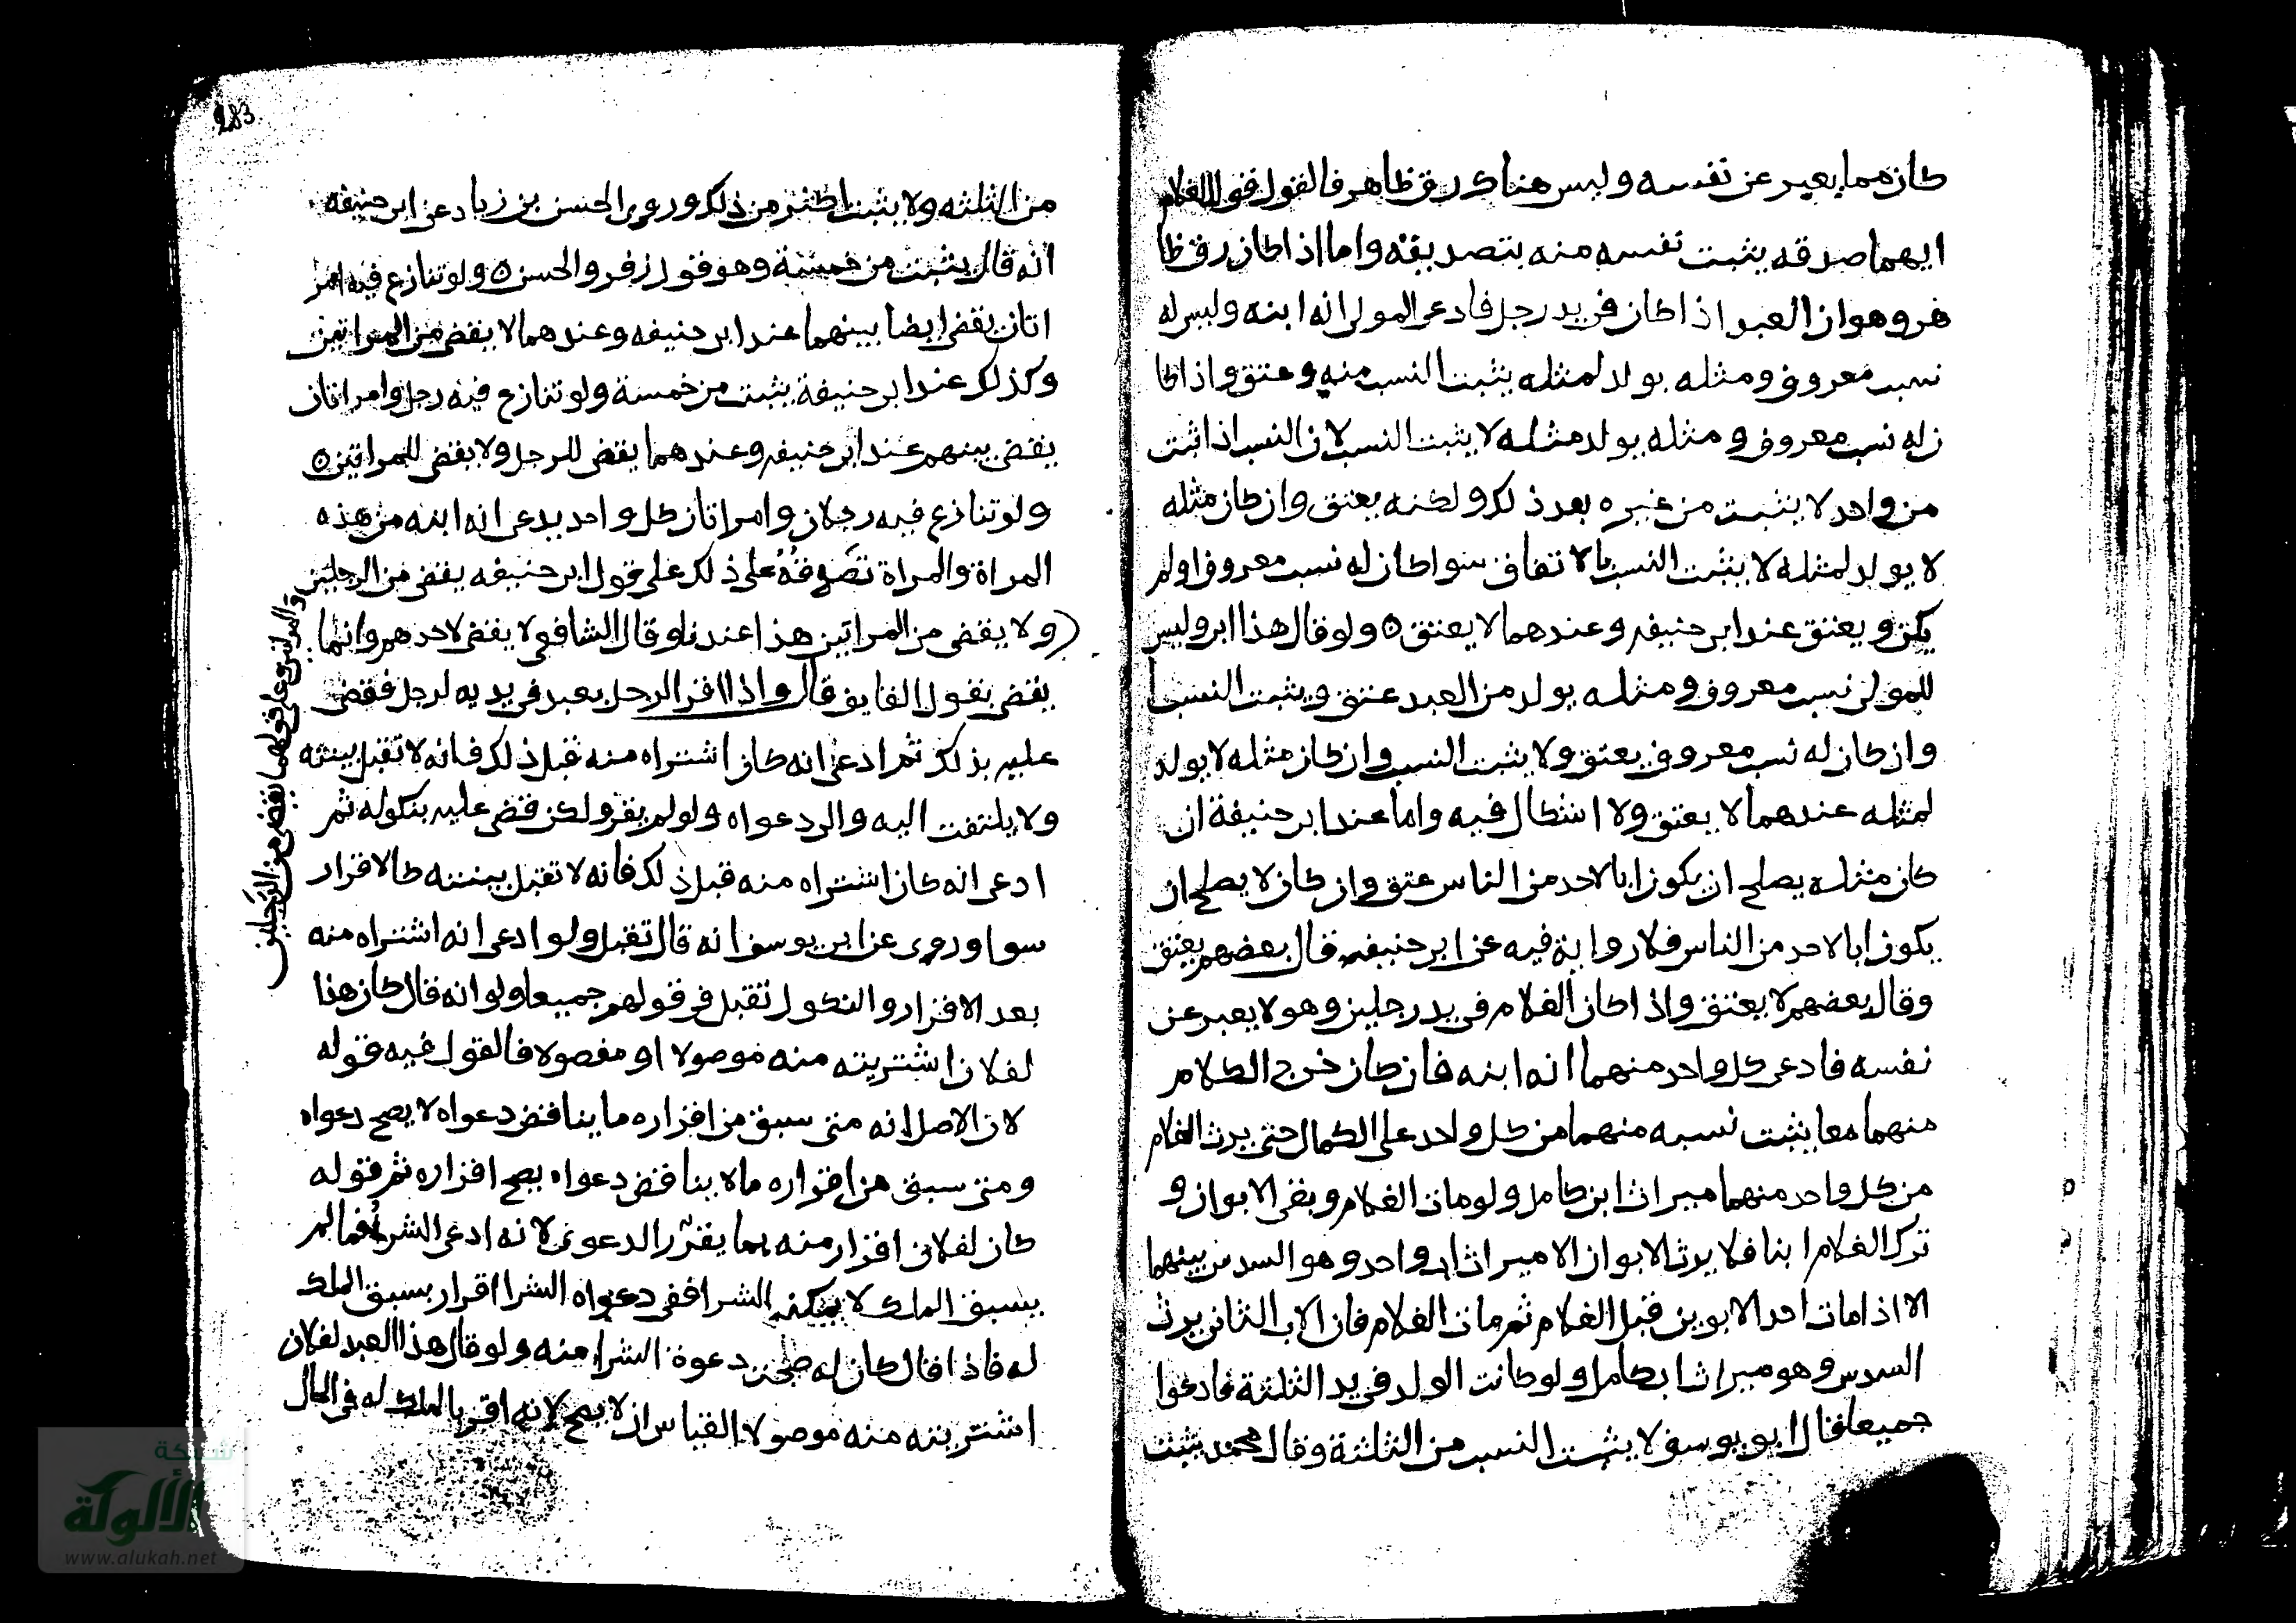 كان مما يعبر عن نفسه وليس هناك رق ظاهر فالقول قول الغلام
ايهما صدقه يثبت نفسه منه بتصديقه واما اذا كان رق ظا
هر وهو ان العبد اذا كان في يد رجل فادعى المولى انه ابنه وليس له
نسب معروف ومثله يولد لمثله يثبت النسب منه وعتق واذا كا
ن له نسب معروف ومثله يولد مثله لا يثبت النسب لان النسب اذا ثبت
من واحد لا يثبت من غيره بعد ذلك ولكنه يعتق وان كان مثله
لا يولد لمثله لا يثبت النسب بالاتفاق سوا كان له نسب معروف او لم
يكن ويعتق عند ابي حنيفه وعندهما لا يعتق ٥ ولو قال هذا ابي وليس
للمولى نسب معروف ومثله يولد من العبد عتق ويثبت النسب
وان كان له نسب معروف يعتق ولا يثبت النسب وان كان مثله لا يولد
لمثله عندهما لا يعتق ولا اشكال فيه واما عند ابي حنيفة ان
كان مثله يصلح ان يكون ابا لاحد من الناس عتق وان كان لا يصلح ان
يكون ابا لاحد من الناس فلا رواية فيه عن ابي حنيفه قال بعضهم يعتق
وقال بعضهم لا يعتق واذا كان الغلام في يد رجلين وهو لا يعبر عن
نفسه فادعى كل واحد منهما انه ابنه فان كان خرج الكلام
منهما معا يثبت نسبه منهما من كل واحد على الكمال حتى يرث الغلام
من كل واحد منهما ميراث ابن كامل ولو مات الغلام وبقي الابوان و
ترك الغلام ابنا فلا يرث الابوان الا ميراث اب واحد وهو السدس بينهما
الا اذا مات احد الابوين قبل الغلام ثم مات الغلام فان الاب الثاني يرث
السدس وهو ميراث اب كامل ولو كانت الولد في يد الثلثة فادعوا
جميعا فقال ابو يوسف لا يثبت النسب من الثلثة وقال محمد يثبت
283
من الثلثه ولا يثبت اكثر من ذلك وروى الحسن بن زياد عن ابي حنيفه
انه قال يثبت من خمسة وهو قول زفر والحسن ٥ ولو تنازع فيه امر
اتان يقضى ايضا بينهما عند ابي حنيفه وعندهما لا يقضى من المراتين
وكذلك عند ابي حنيفة يثبت من خمسة ولو تنازع فيه رجل وامراتان
يقضى بينهم عند ابي حنيفه وعندهما يقضى للرجل ولا يقضى للمراتين ٥
ولو تنازع فيه رجلان وامراتان كل واحد يدعى انه ابنه من هذه
المراة والمراة تصدقه على ذلك على قول ابي حنيفه يقضى من الرجلين
ولا يقضى من المراتين هذا عندنا وقال الشافعي لا يقضى لاحدهم وانما
يقضى بقول القايف قال واذا اقر الرجل بعبد في يديه لرجل فقضى
عليه بذلك ثم ادعى انه كان اشتراه منه قبل ذلك فانه لا تقبل بينته
ولا يلتفت اليه والى دعواه ولو لم يقر ولكن قضى عليه بنكوله ثم
ادعى انه كان اشتراه منه قبل ذلك فانه لا تقبل بينته كالاقرار
سوا وروى عن ابي يوسف انه قال تقبل ولو ادعى انه اشتراه منه
بعد الاقرار والنكول تقبل في قولهم جميعا ولو انه قال كان هذا
لفلان اشتريته منه موصولا او مفصولا فالقول فيه قوله
لان الاصل انه متى سبق من اقراره ما يناقض دعواه لا يصح دعواه
ومتى سبق من اقراره ما لا يناقض دعواه يصح اقراره ثم قوله
كان لفلان اقرار منه بما يقرر الدعوى لانه ادعى الشرا فما لم
يسبق الملك لا يمكنه الشرا ففي دعواه الشرا اقرار بسبق الملك
له فاذا قال كان له صحت دعوة الشراء منه ولو قال هذا العبد لفلان
اشتريته منه موصولا القياس ان لا يصح لانه اقر بالملك له في الحال
والمراتين وعلى قولهما يقضى من الرجلين
شبكة
الألوكة
www.alukah.net